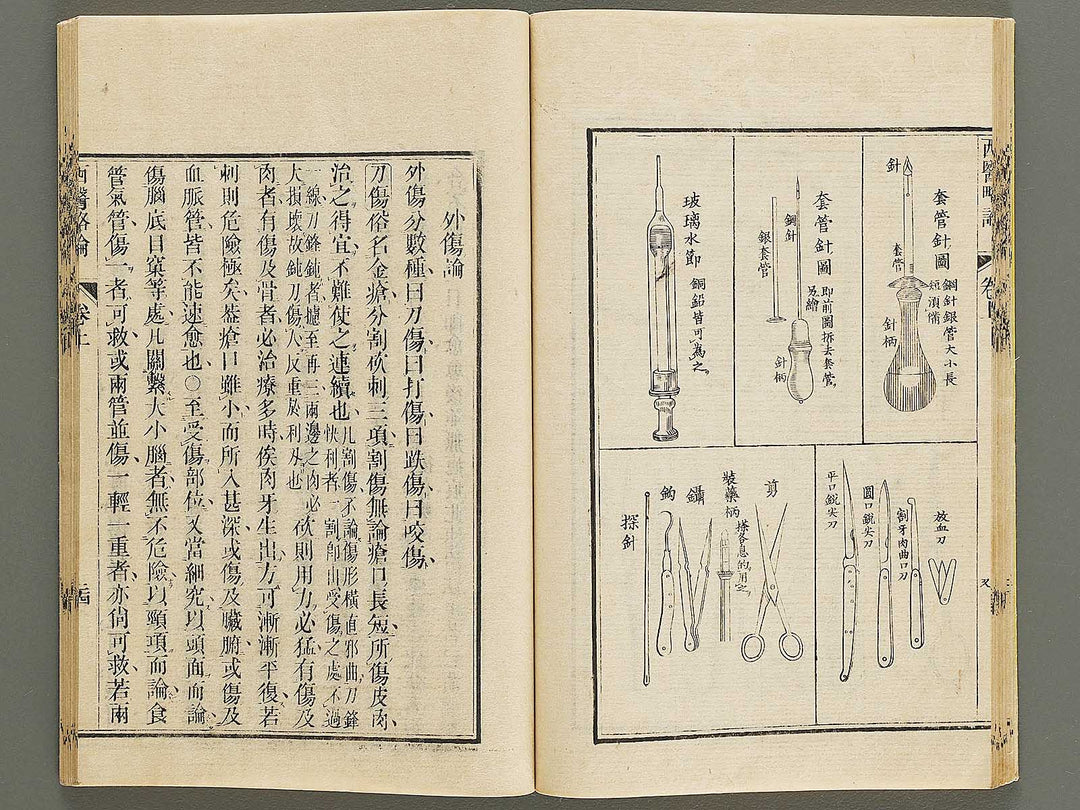 西醫略論
卷上
套管針圖
鋼針銀管大小長
短須備
針
套管
針柄
套管針圖
即前圖拆去套管
另繪
鋼針
銀套管
針柄
玻璃水節
銅鉛皆可為之
放血刀
割牙肉曲口刀
圓口銳尖刀
平口銳尖刀
剪
裝藥柄
搽各息的用之
鑷
鈎
探針
外傷論
外傷分數種曰刀傷曰打傷曰跌傷曰咬傷
刀傷俗名金瘡分割砍刺三項割傷無論瘡口長短所傷皮肉
治之得宜不難使之連續也凡割傷不論傷形橫直邪曲刀鋒快利者一割即由受傷之處不過
一線刀鋒鈍者攎至再三兩邊之肉必大損壞故鈍刀傷人反重於利刀也砍則用力必猛有傷及
肉者有傷及骨者必治療多時俟肉牙生出方可漸漸平復若
刺則危險極矣蓋瘡口雖小而所入甚深或傷及臟腑或傷及
血脈管皆不能速愈也○至受傷部位又當細究以頭面而論
傷腦底目窠等處凡關繫大小腦者無不危險以頸項而論食
管氣管傷一者可救或兩管並傷一輕一重者亦尚可救若兩
西醫略論
卷上